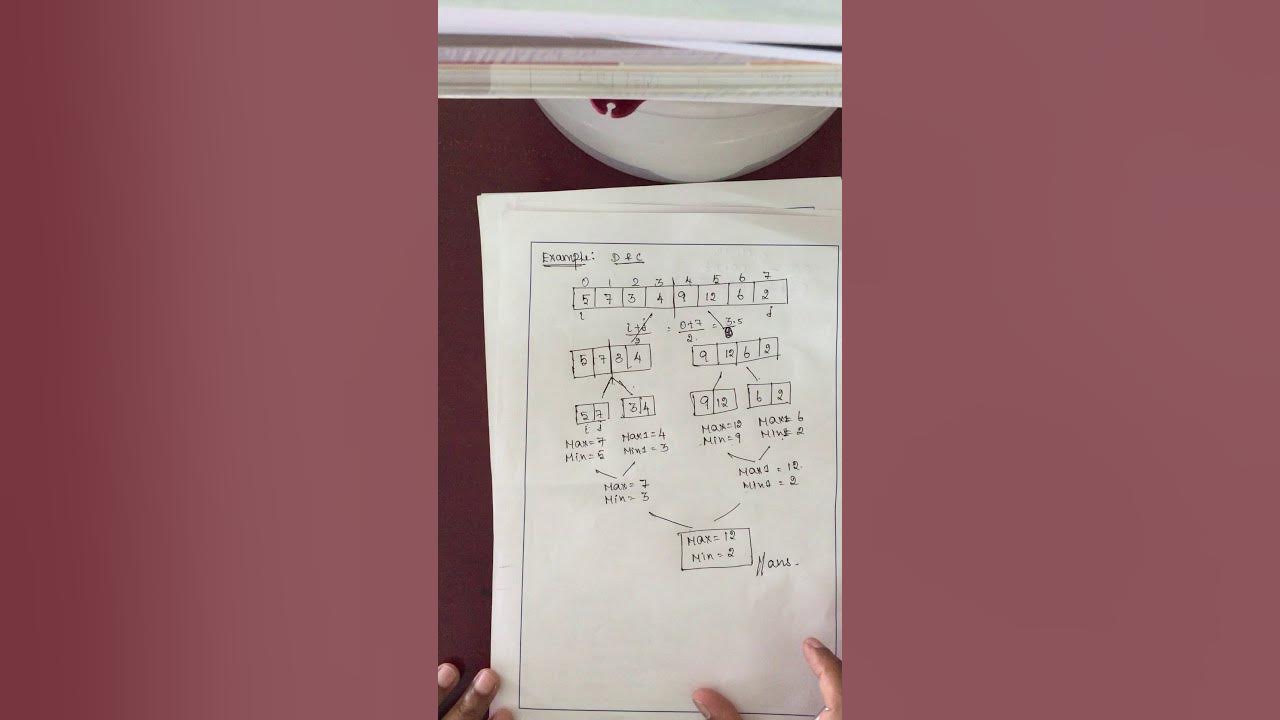 Example: D & C
0 1 2 3 4 5 6 7
5 7 3 4 9 12 6 2
i j
i+j/2 = 0+7/2 = 3.5
5 7 3 4 9 12 6 2
5 7 3 4 9 12 6 2
i j
Max=7 Max1=4 Max=12 Max1=6
Min=5 Min1=3 Min=9 Min1=2
Max1=12
Min1=2
Max=7
Min=3
Max=12
Min=2
//ans.